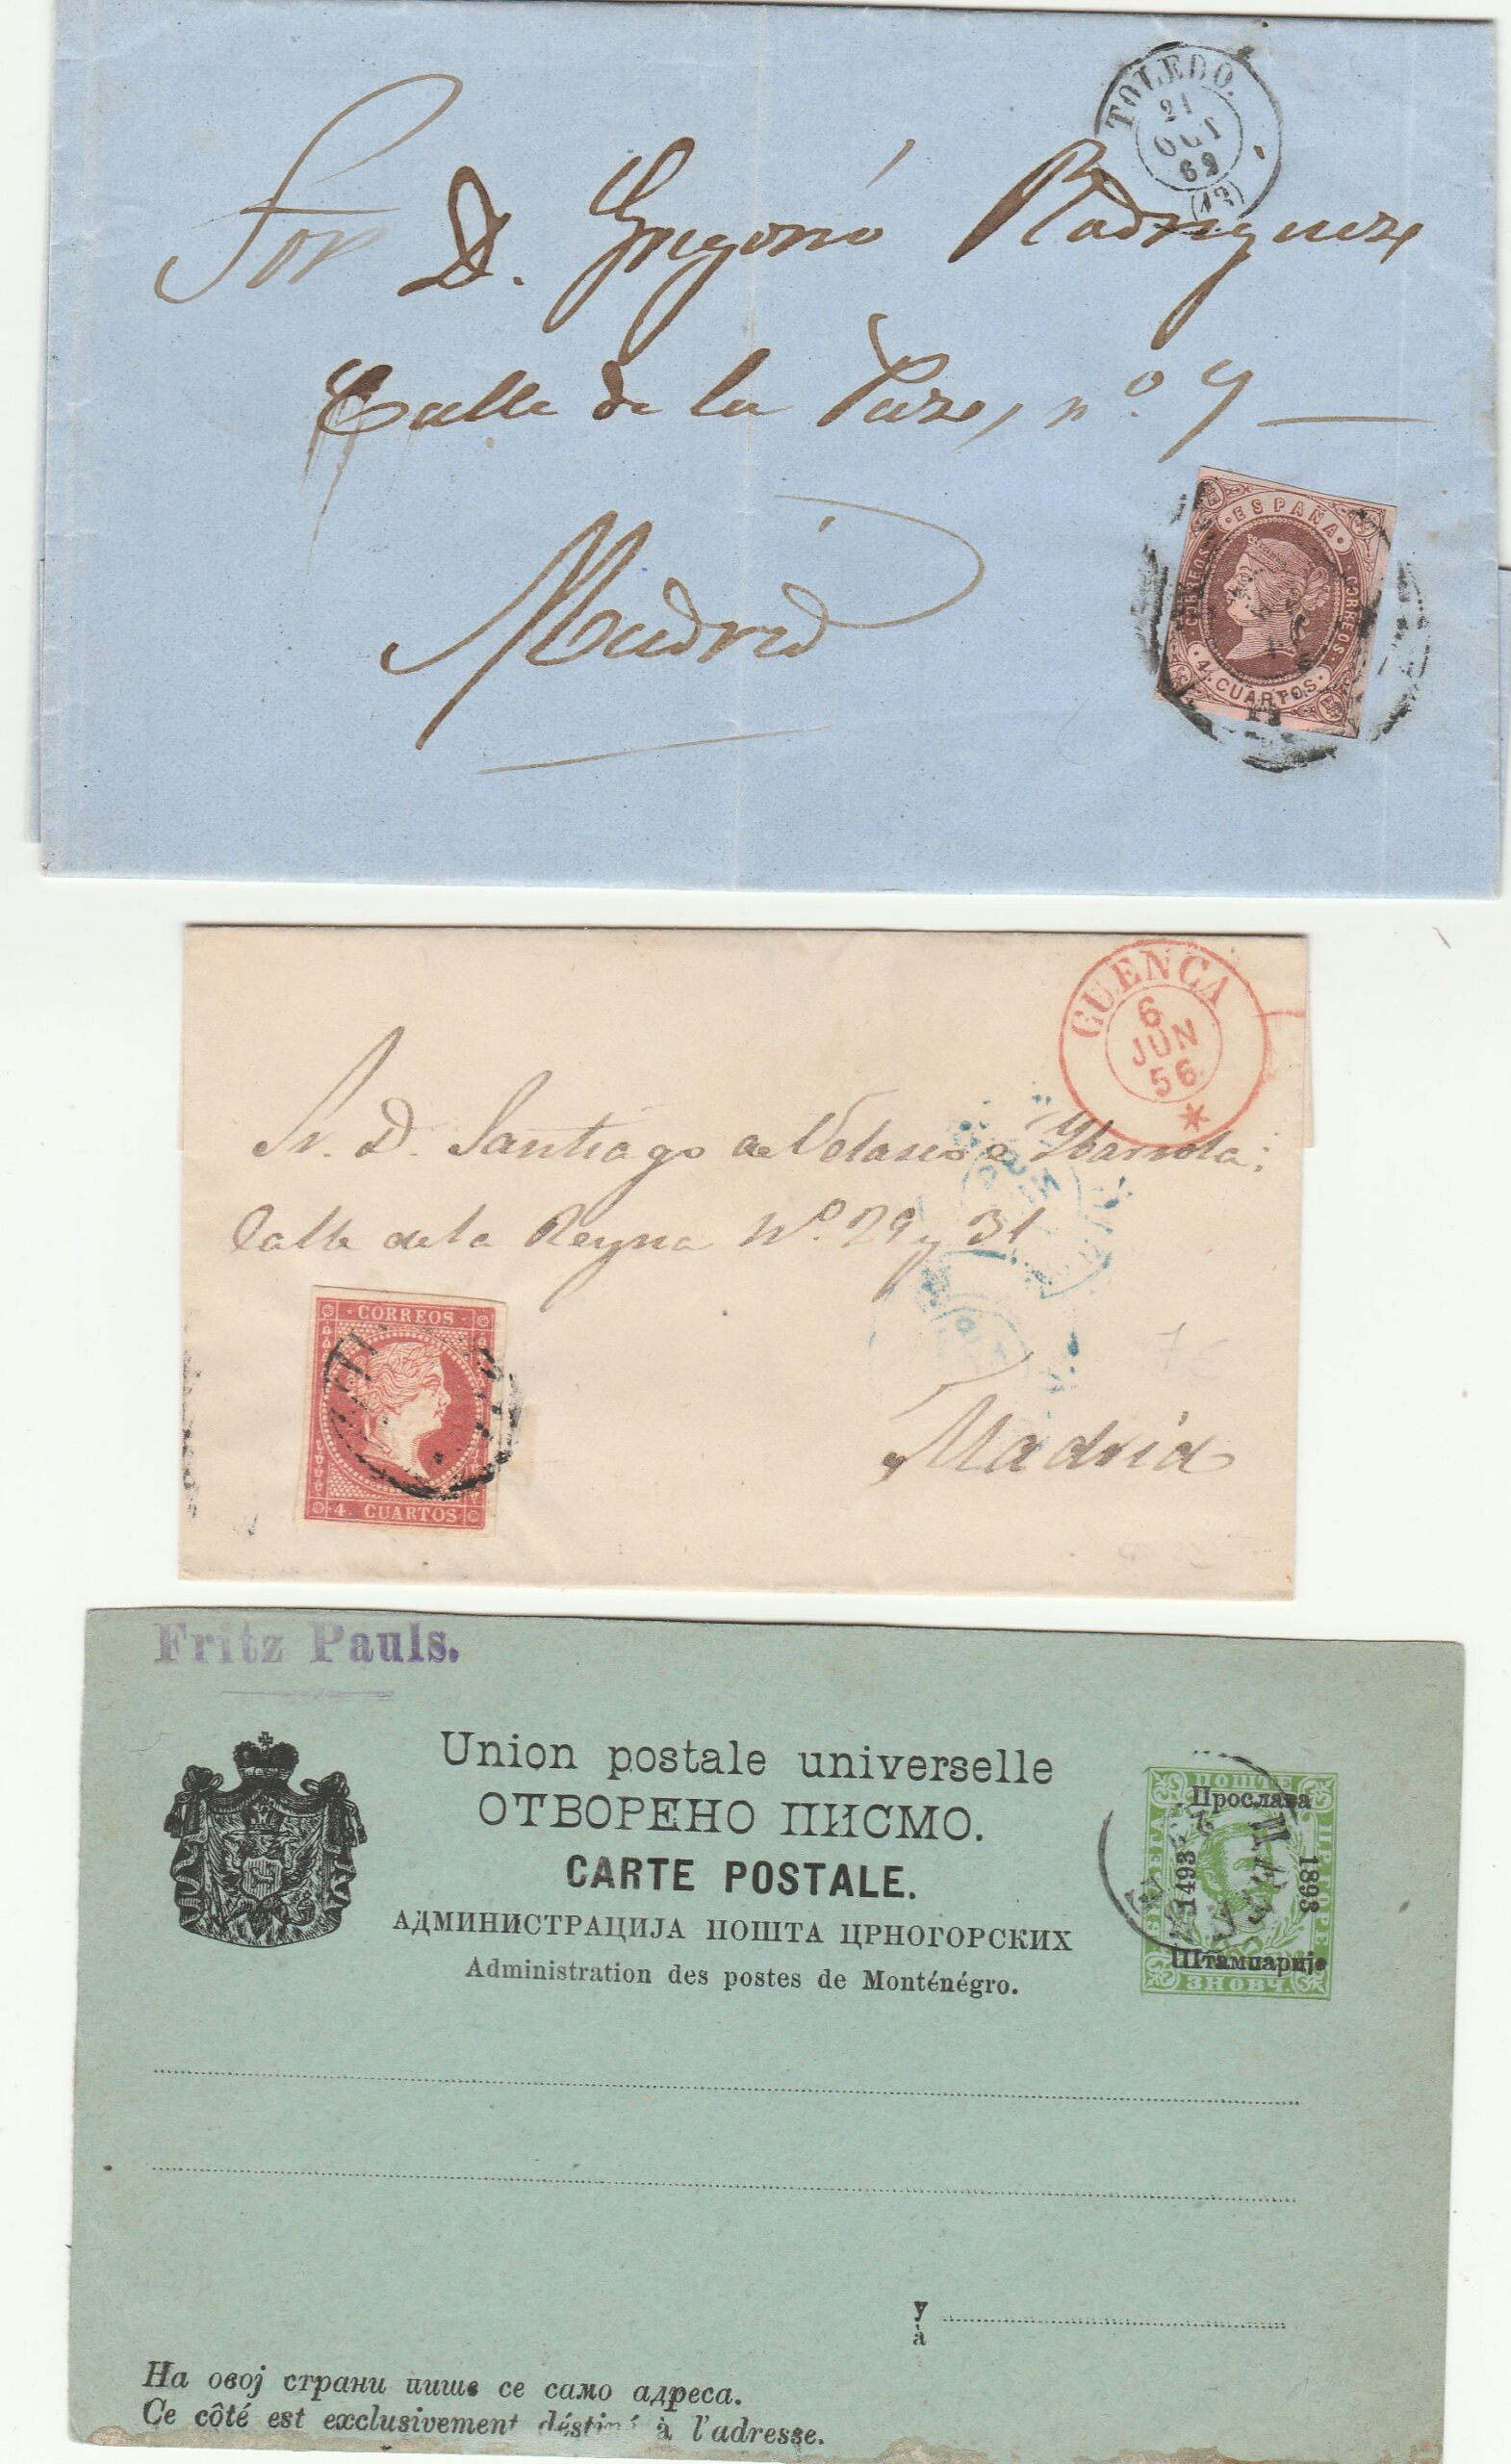 TOLEDO.
21
OCT
62
(13)
Sor D. Gregorio Rodriguez
Calle de la Paz, nº. 7
Madrid
·ESPAÑA·
CORREOS
CORREOS
·4·CUARTOS·
CUENCA
6
JUN
56
Sr. D. Santiago de Velasco e Ybarrola:
Calle de la Reyna Nº. 29 y 31
Madrid
·CORREOS·
·4· CUARTOS·
Fritz Pauls.
Union postale universelle
ОТВОРЕНО ПИСМО.
CARTE POSTALE.
АДМИНИСТРАЦИЈА ПОШТА ЦРНОГОРСКИХ
Administration des postes de Monténégro.
ПОШТЕ
Прослава
1493
1893
Штампарије
3 НОВЧ.
У
à
На овој страни пише се само адреса.
Ce côté est exclusivement déstiné à l'adresse.